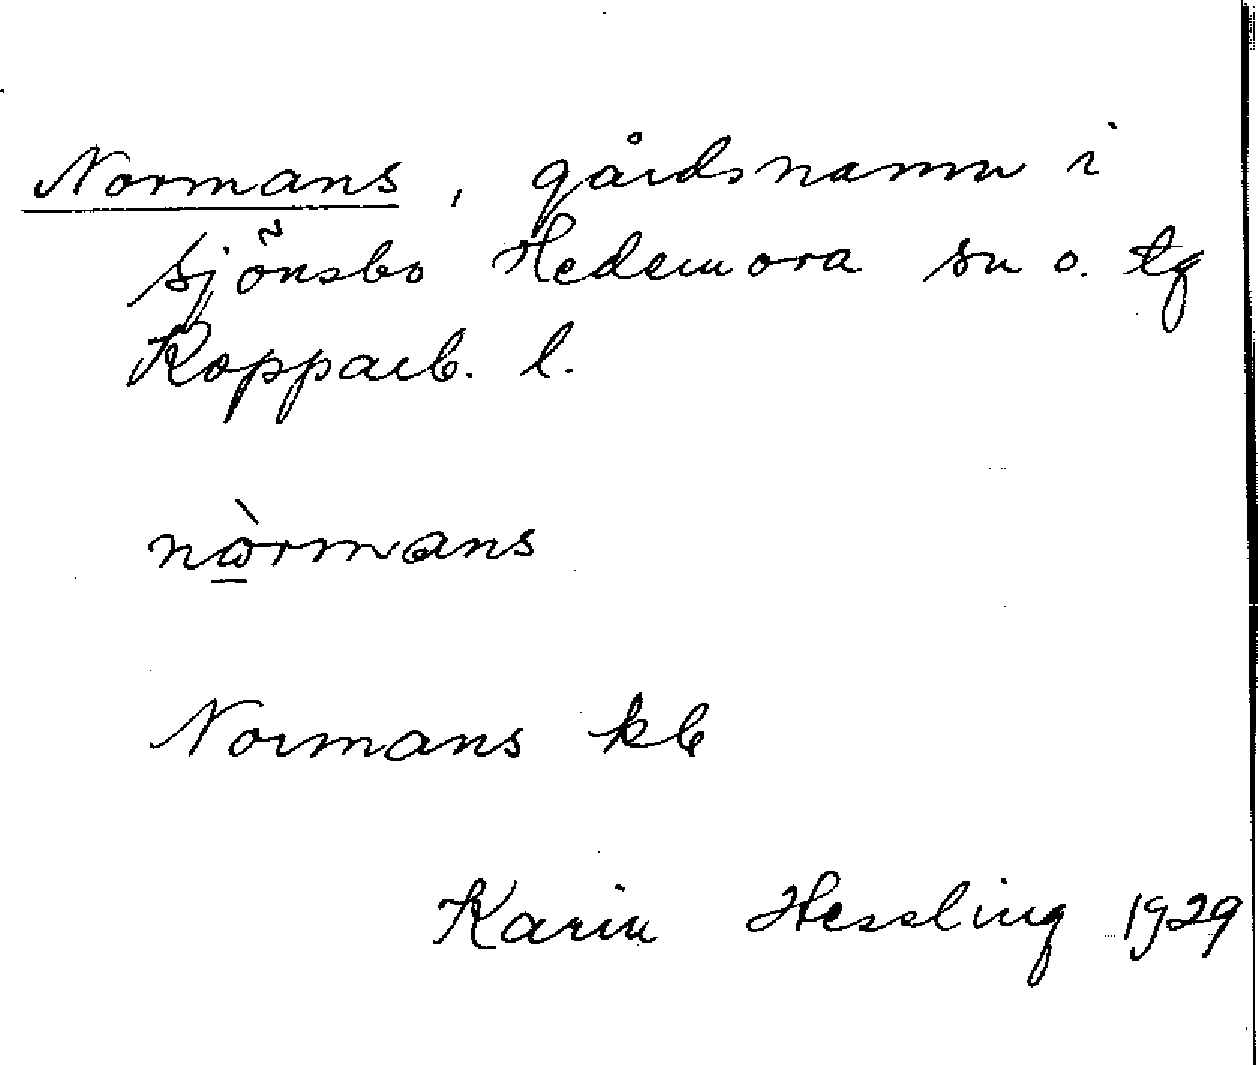 Normans, gårdsnamn i
Sjönsbo Hedemora sn o. tg
Kopparb. l.
nὼrmans
Normans kb
Karin Hessling 1929